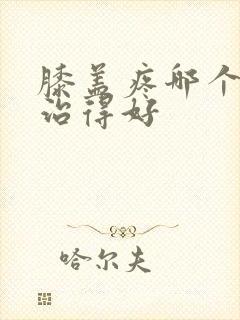 膝盖疼哪个
治得好
哈尔夫